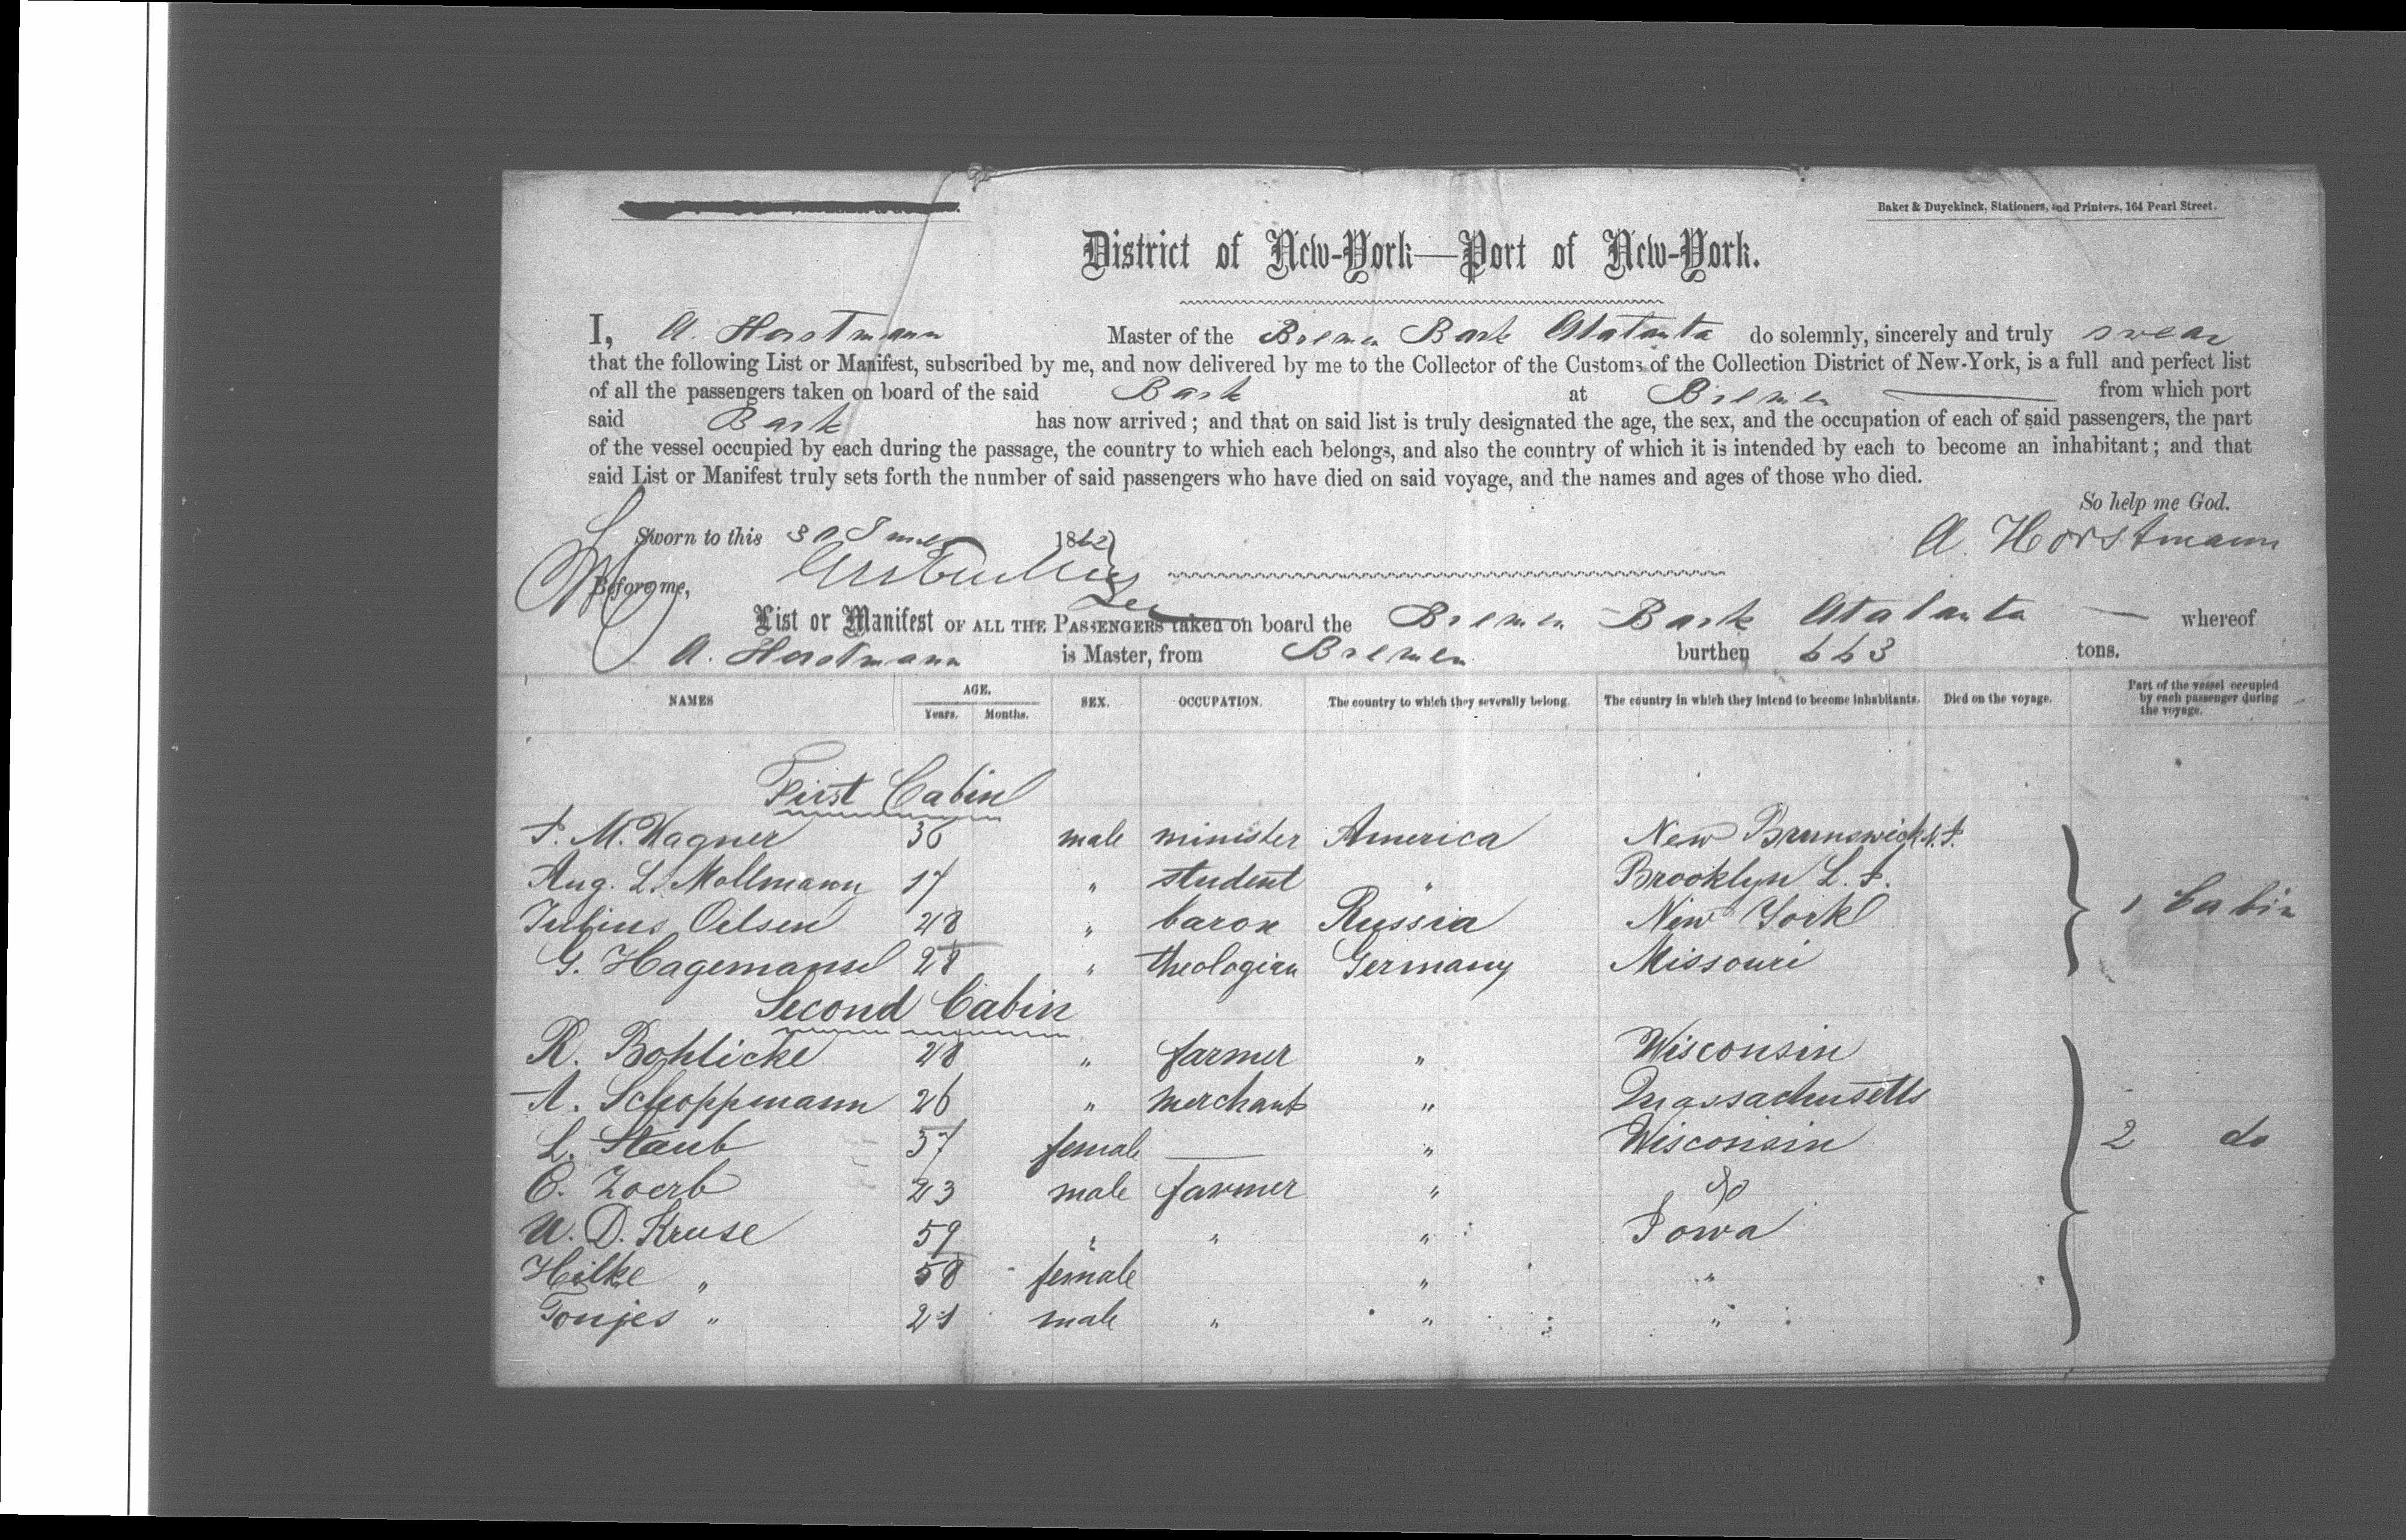 Baker & Duyckinck, Stationers, and Printers, 164 Pearl Street.
District of New-York—Port of New-York.
I, A. Horstmann Master of the Bremen Bark Atalanta do solemnly, sincerely and truly swear
that the following List or Manifest, subscribed by me, and now delivered by me to the Collector of the Customs of the Collection District of New-York, is a full and perfect list
of all the passengers taken on board of the said Bark at Bremen from which port
said Bark has now arrived; and that on said list is truly designated the age, the sex, and the occupation of each of said passengers, the part
of the vessel occupied by each during the passage, the country to which each belongs, and also the country of which it is intended by each to become an inhabitant; and that
said List or Manifest truly sets forth the number of said passengers who have died on said voyage, and the names and ages of those who died.
So help me God.
Sworn to this 30 June 1862 A. Horstmann
Before me,
List or Manifest OF ALL THE PASSENGERS taken on board the Bremen Bark Atalanta whereof
A. Horstmann is Master, from Bremen burthen 663 tons.
NAMES AGE. Years. Months. SEX. OCCUPATION. The country to which they severally belong. The country in which they intend to become inhabitants. Died on the voyage. Part of the vessel occupied by each passenger during the voyage.
First Cabin
J. M. Wagner 36 male minister America New Brunswick N. J.
Aug. L. Mollmann 17 " student " Brooklyn L. I.
Julius Oelsen 28 " baron Russia New York
G. Hagemann 28 " theologian Germany Missouri
1 Cabin
Second Cabin
R. Bohlicke 28 " farmer " Wisconsin
A. Schoppmann 26 " merchant " Massachusetts
L. Staub 37 female — " Wisconsin
C. Zoerb 23 male farmer " do
2 do
U. D. Kruse 59 " " " Iowa
Hilke " 58 female " "
Tonjes " 21 male " " "